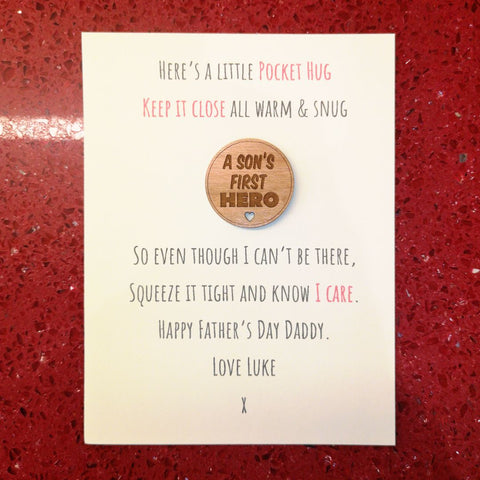 Here's a little Pocket Hug
Keep it close all warm & snug
A SON'S
FIRST
HERO
So even though I can't be there,
Squeeze it tight and know I care.
Happy Father's Day Daddy.
Love Luke
x